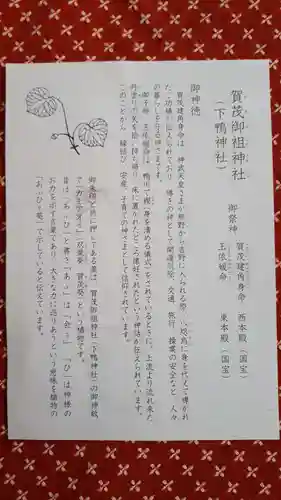 賀茂御祖神社
(下鴨神社)
御祭神
賀茂建角身命　西本殿(国宝)
玉依媛命　東本殿(国宝)
御神徳
賀茂建角身命は、神武天皇さまが熊野から吉野に入られる際、八咫烏に身を代えて導かれ
たご功績が伝えられており、導きの神として開運厄除、交通、旅行、操業の安全など、人々
の暮らしを守る神さまです。
御子神、玉依媛命は、鴨川で禊(身を清める儀式)をされているときに、上流より流れ来た
丹塗りの矢を拾い持ち帰り、床に置かれたところ懐妊されたという神話が伝えられています。
このことから、縁結び、安産、子育ての神さまとして信仰されています。
御朱印と共に押してある葉は、賀茂御祖神社(下鴨神社)の御神紋
で「カモアオイ」「双葉葵」「賀茂葵」という植物です。
昔は「あふひ」と書き「あふ」は「会う」、「ひ」は神様の
お力を示す言葉であり、大きな力に巡りあうという意味を植物の
「あふひ(葵)」で示していると伝えています。